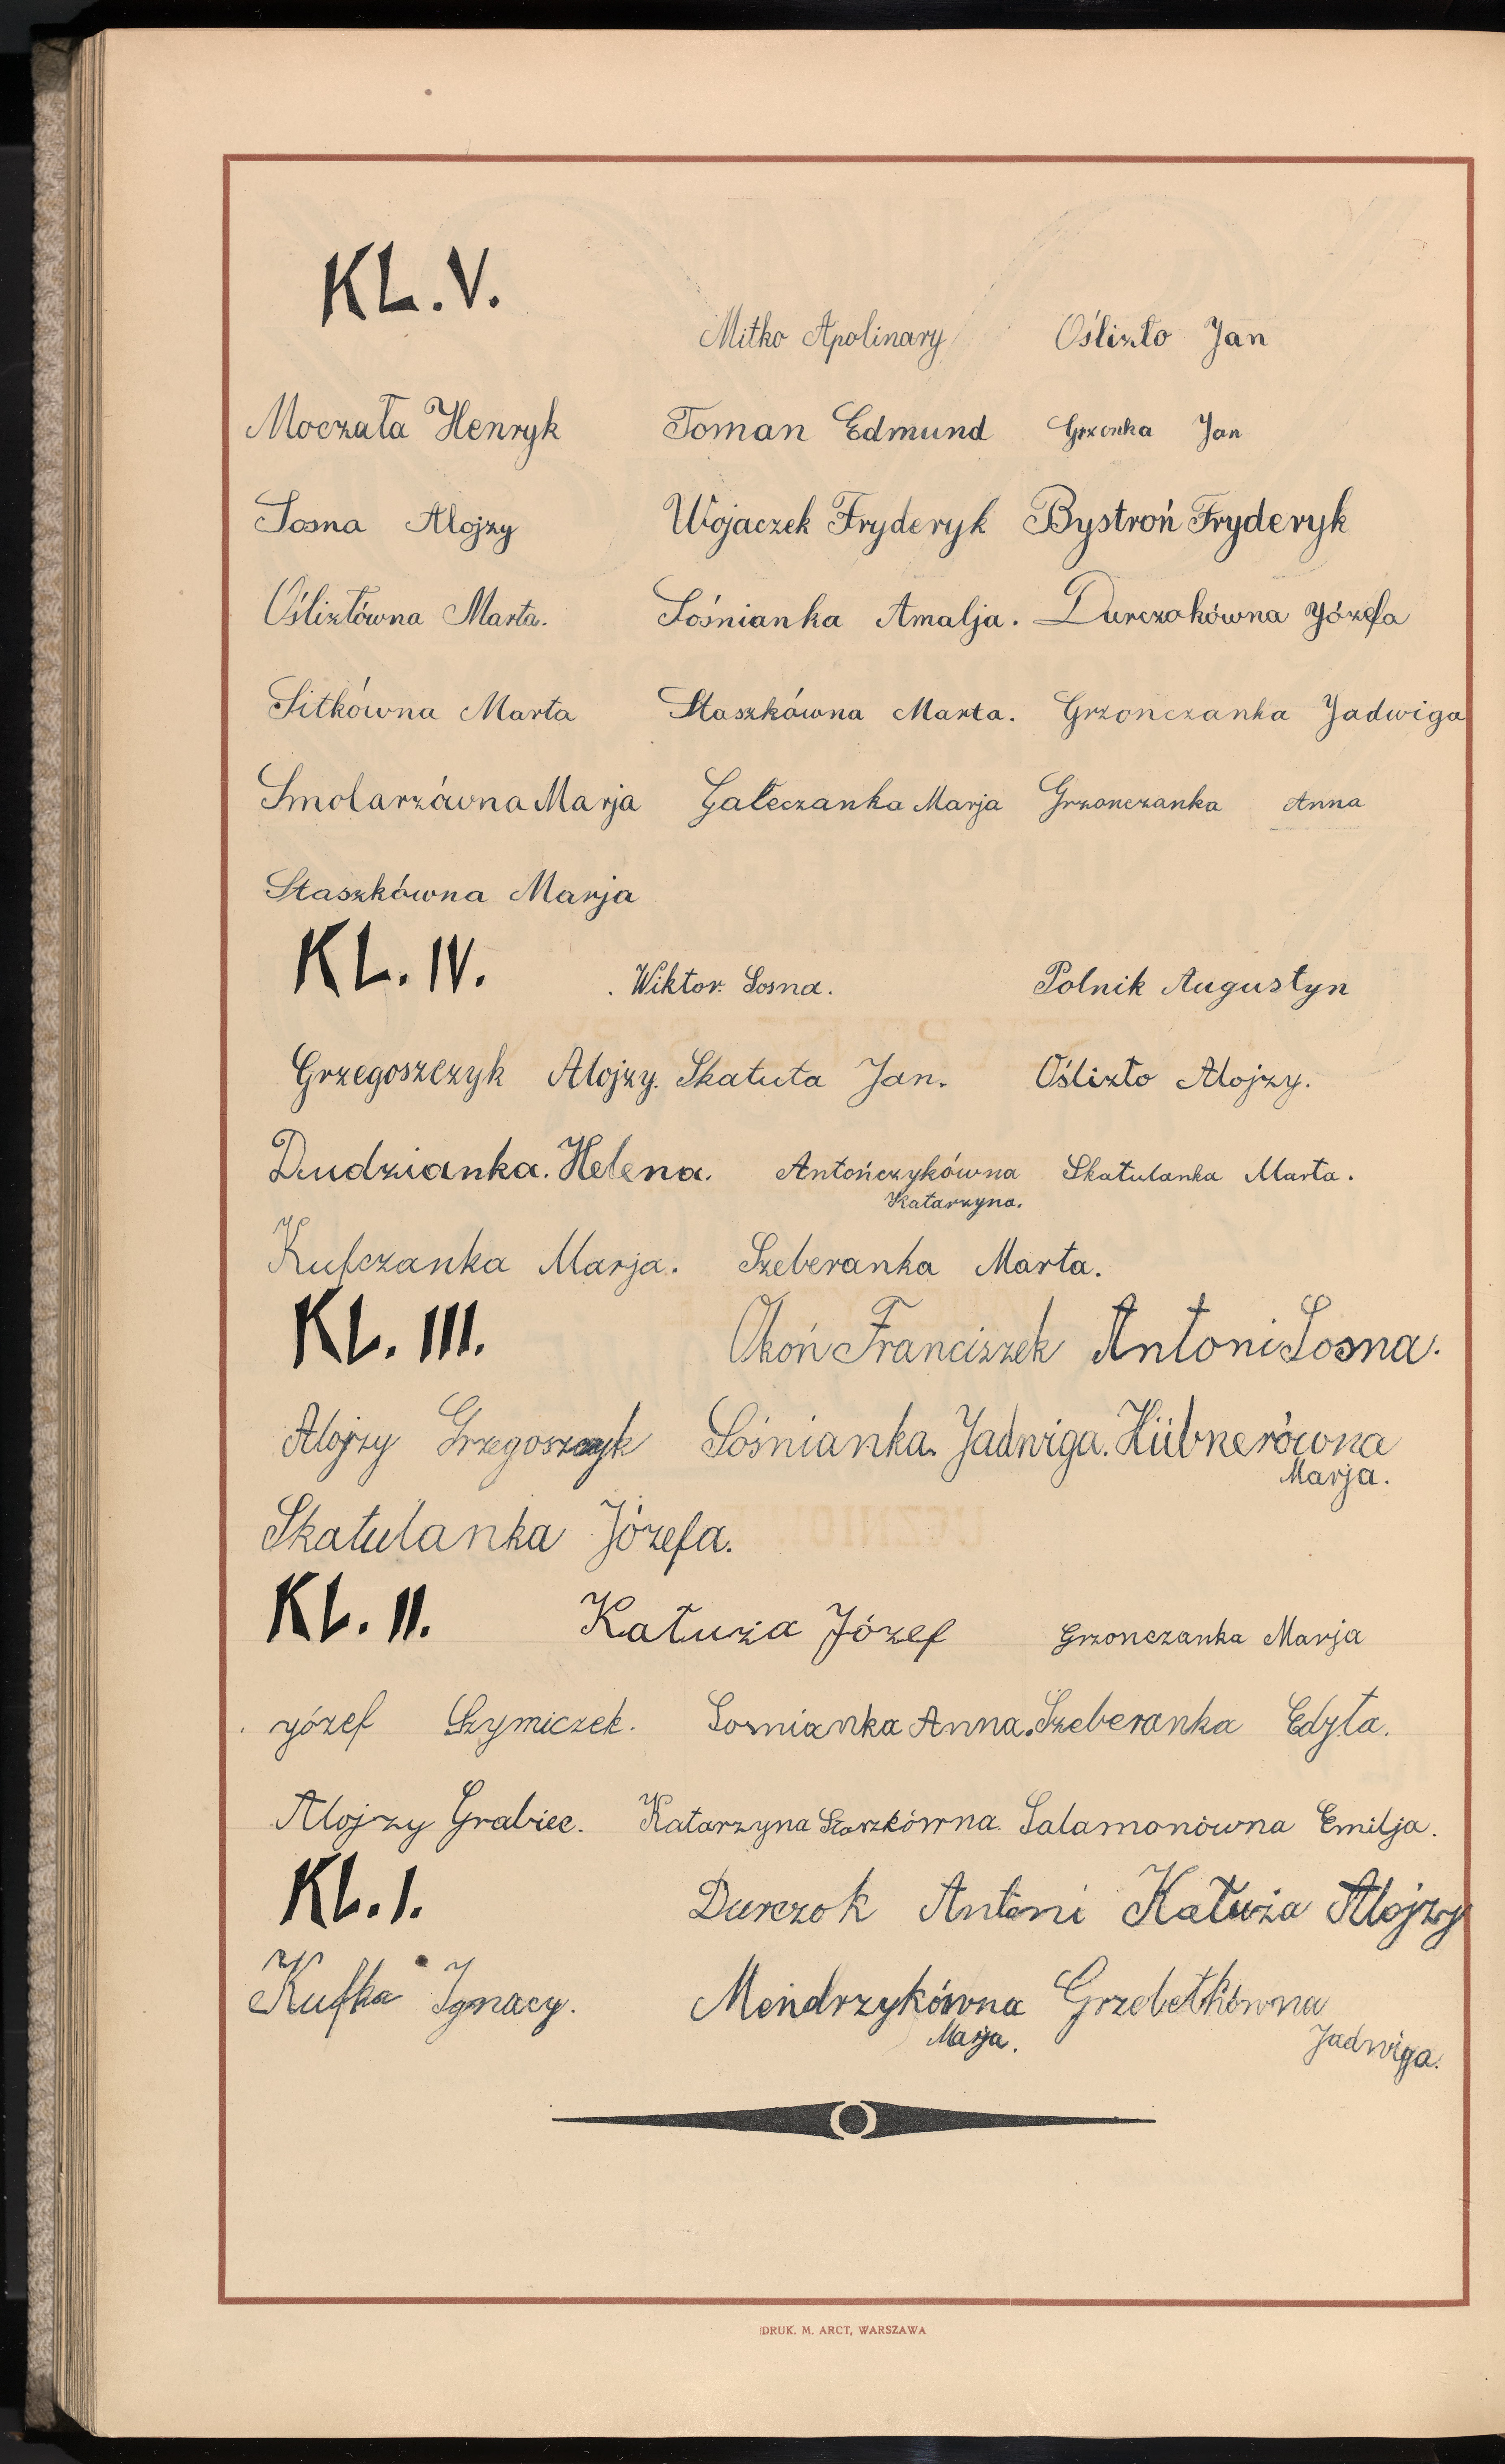 KL. V.
Mitko Apolinary Oślizło Jan
Moczała Henryk Toman Edmund Grzonka Jan
Sosna Alojzy Wojaczek Fryderyk Bystroń Fryderyk
Oślizłówna Marta. Sośnianka Amalja. Durczokówna Józefa
Sitkówna Marta Staszkówna Marta. Grzonczanka Jadwiga
Smolarzówna Marja Gałeczanka Marja Grzonczanka Anna
Staszkówna Marja
KL. IV.
. Wiktor Sosna. Polnik Augustyn
Grzegoszczyk Alojzy. Skatuła Jan. Oślizło Alojzy.
Dudzianka. Helena. Antończykówna Skatulanka Marta.
Katarzyna.
Kufczanka Marja. Szeberanka Marta.
KL. III.
Okoń Franciszek Antoni Sosna.
Alojzy Grzegoszczyk Sośnianka. Jadwiga. Hübnerówna
Marja.
Skatulanka Józefa.
KL. II.
Katuża Józef Grzonczanka Marja
Józef Szymiczek. Sosnianka Anna. Szeberanka Edyta.
Alojzy Grabiec. Katarzyna Staszkówna. Salamonówna Emilja.
KL. I.
Durczok Antoni Katuża Alojzy
Kufka Ignacy. Mendrzykówna Grzebetkówna
Marja. Jadwiga.
DRUK. M. ARCT, WARSZAWA